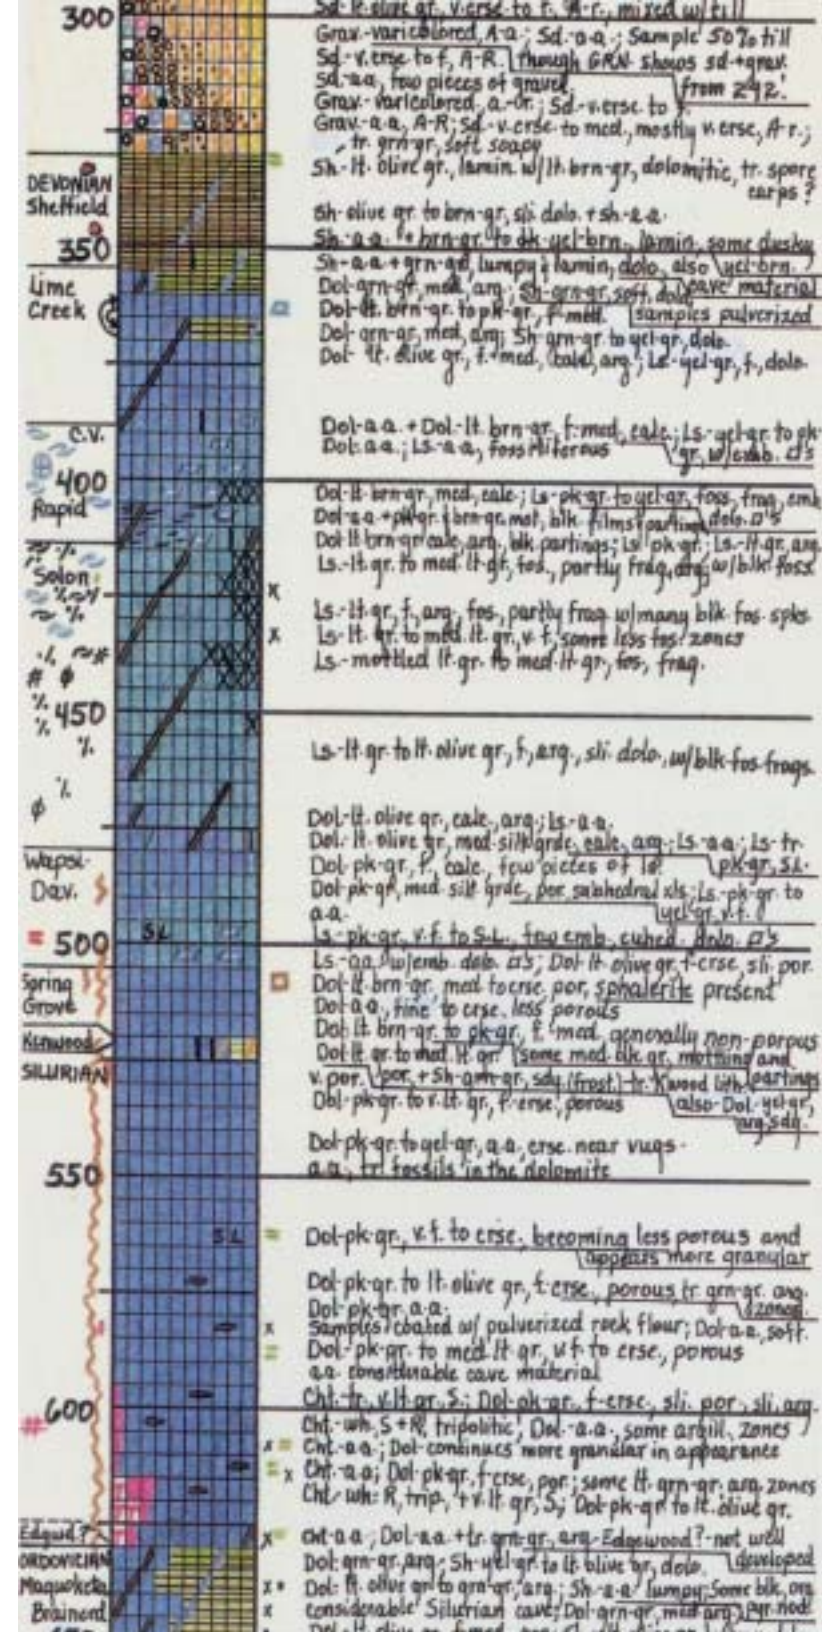 Sd-lt. olive gr., v.crse to f., A-r., mixed w/till
300
Grav.-varicolored, A-a.; Sd.-a.a.; Sample 50% till
Sd.-v.crse to f, A-R. though GRN shows sd+grav.
Sd.-aa, few pieces of gravel from 292'.
Grav.-varicolored, a-or.; Sd-v.crse to f.
Grav.-a.a, A-R; Sd-v.crse to med, mostly v.crse, A-r.;
tr. grn-gr, soft soapy
DEVONIAN
Sheffield
Sh-lt. olive gr., lamin. w/lt. brn-gr, dolomitic, tr. spore carps?
Sh-olive gr. to brn-gr, sli dolo. + sh-a.a.
350
Sh-a.a. + brn-gr. to dk yel-brn, lamin, some dusky yel-brn.
Sh-a.a + grn-gr, lumpy + lamin, dolo, also cave material
Lime
Creek
Dol-grn-gr, med, arg; Sh-grn-gr, soft, dolo
Dol-lt. brn-gr. to pk-gr, f-med. samples pulverized
Dol-grn-gr, med, arg; Sh-grn-gr to yel-gr, dolo.
Dol-lt. olive gr, f-med, calc, arg; Ls-yel-gr, f, dolo.
C.V.
Dol-a.a. + Dol-lt. brn-gr, f-med, calc; Ls-yel-gr to pk-gr, w/emb.
Dol-a.a.; Ls-a.a, fossiliferous
400
Rapid
Dol-lt brn-gr, med, calc; Ls-pk-gr. to yel-gr, foss, frag, emb dolo.
Dol-aa + pk-gr + brn-gr. mot, blk films + parting
Dol-lt brn-gr, calc, arg, blk partings; Ls pk-gr; Ls-lt-gr, arg
Ls.-lt-gr. to med. lt-gr, fos., partly frag, arg, w/blk foss
Solon
Ls-lt-gr, f., arg, fos, partly frag w/many blk fos spks
Ls-lt. gr. to med. lt. gr., v.f, some less fos. zones
Ls-mottled lt-gr. to med-lt gr, fos, frag.
450
Ls-lt-gr. to lt. olive gr, f, arg., sli. dolo., w/blk fos frags.
Dol-lt. olive gr., calc, arg.; Ls-a.a.
Dol-lt. olive gr, med silt grde, calc, arg; Ls-a.a; Ls-tr. pk-gr, S.L.
Wapsi-
Dav.
Dol-pk-gr, f., calc, few pieces of ls
Dol-pk-gr, med silt grde, por, subhedral xls; Ls-pk-gr. to yel-gr v.f.
a.a.
S.L
500
Ls-pk-gr., v.f. to S.L., few emb, euhed. dolo.
Ls-aa w/emb. dolo.; Dol-lt. olive gr, f-crse, sli. por.
Spring
Grove
Dol-lt. brn-gr, med to crse por, sphalerite present
Dol-a.a, fine to crse, less porous
Kenwood
Dol-lt. brn-gr. to pk-gr, f-med, generally non-porous
Dol-lt gr. to med lt gr some med. blk gr. mottling and partings
SILURIAN
v. por. por, + Sh-grn-gr, sdy (frost.)-tr. Kwood lith
Dol-pk-gr. to v. lt. gr., f-crse, porous also Dol-yel-gr, arg, sdy.
Dol-pk-gr. to yel-gr, a.a., crse near vugs.
550
a.a, tr. fossils in the dolomite
SL
Dol-pk-gr., v.f. to crse., becoming less porous and
appears more granular
Dol-pk-gr. to lt. olive gr, f-crse, porous, tr grn-gr. arg. zones
Dol-pk-gr, a.a.
Samples coated w/ pulverized rock flour; Dol-a.a, soft.
Dol-pk-gr to med. lt gr, v.f. to crse., porous
a.a. considerable cave material
Cht-tr, v.lt gr, S.; Dol-pk-gr, f-crse, sli. por, sli, arg.
600
Cht-wh, S+R, tripolitic; Dol-a.a., some argill. zones
Cht-aa; Dol-continues more granular in appearance
Cht-a.a; Dol-pk-gr, f-crse, por; some lt. grn-gr. arg. zones
Cht-wh: R, trip, + v. lt gr, S; Dol-pk-gr to lt. olive gr.
Edgwd?
Cht-a.a; Dol-a.a. + tr. grn-gr, arg-Edgewood?-not well developed
ORDOVICIAN
Dol-grn-gr, arg; Sh-yel-gr. to lt olive gr, dolo.
Maquoketa
Dol-lt. olive gr to grn-gr, arg; Sh-a.a. lumpy; some blk, org
Brainard
considerable Silurian cave; Dol-grn-gr, med arg, pyr. nod.